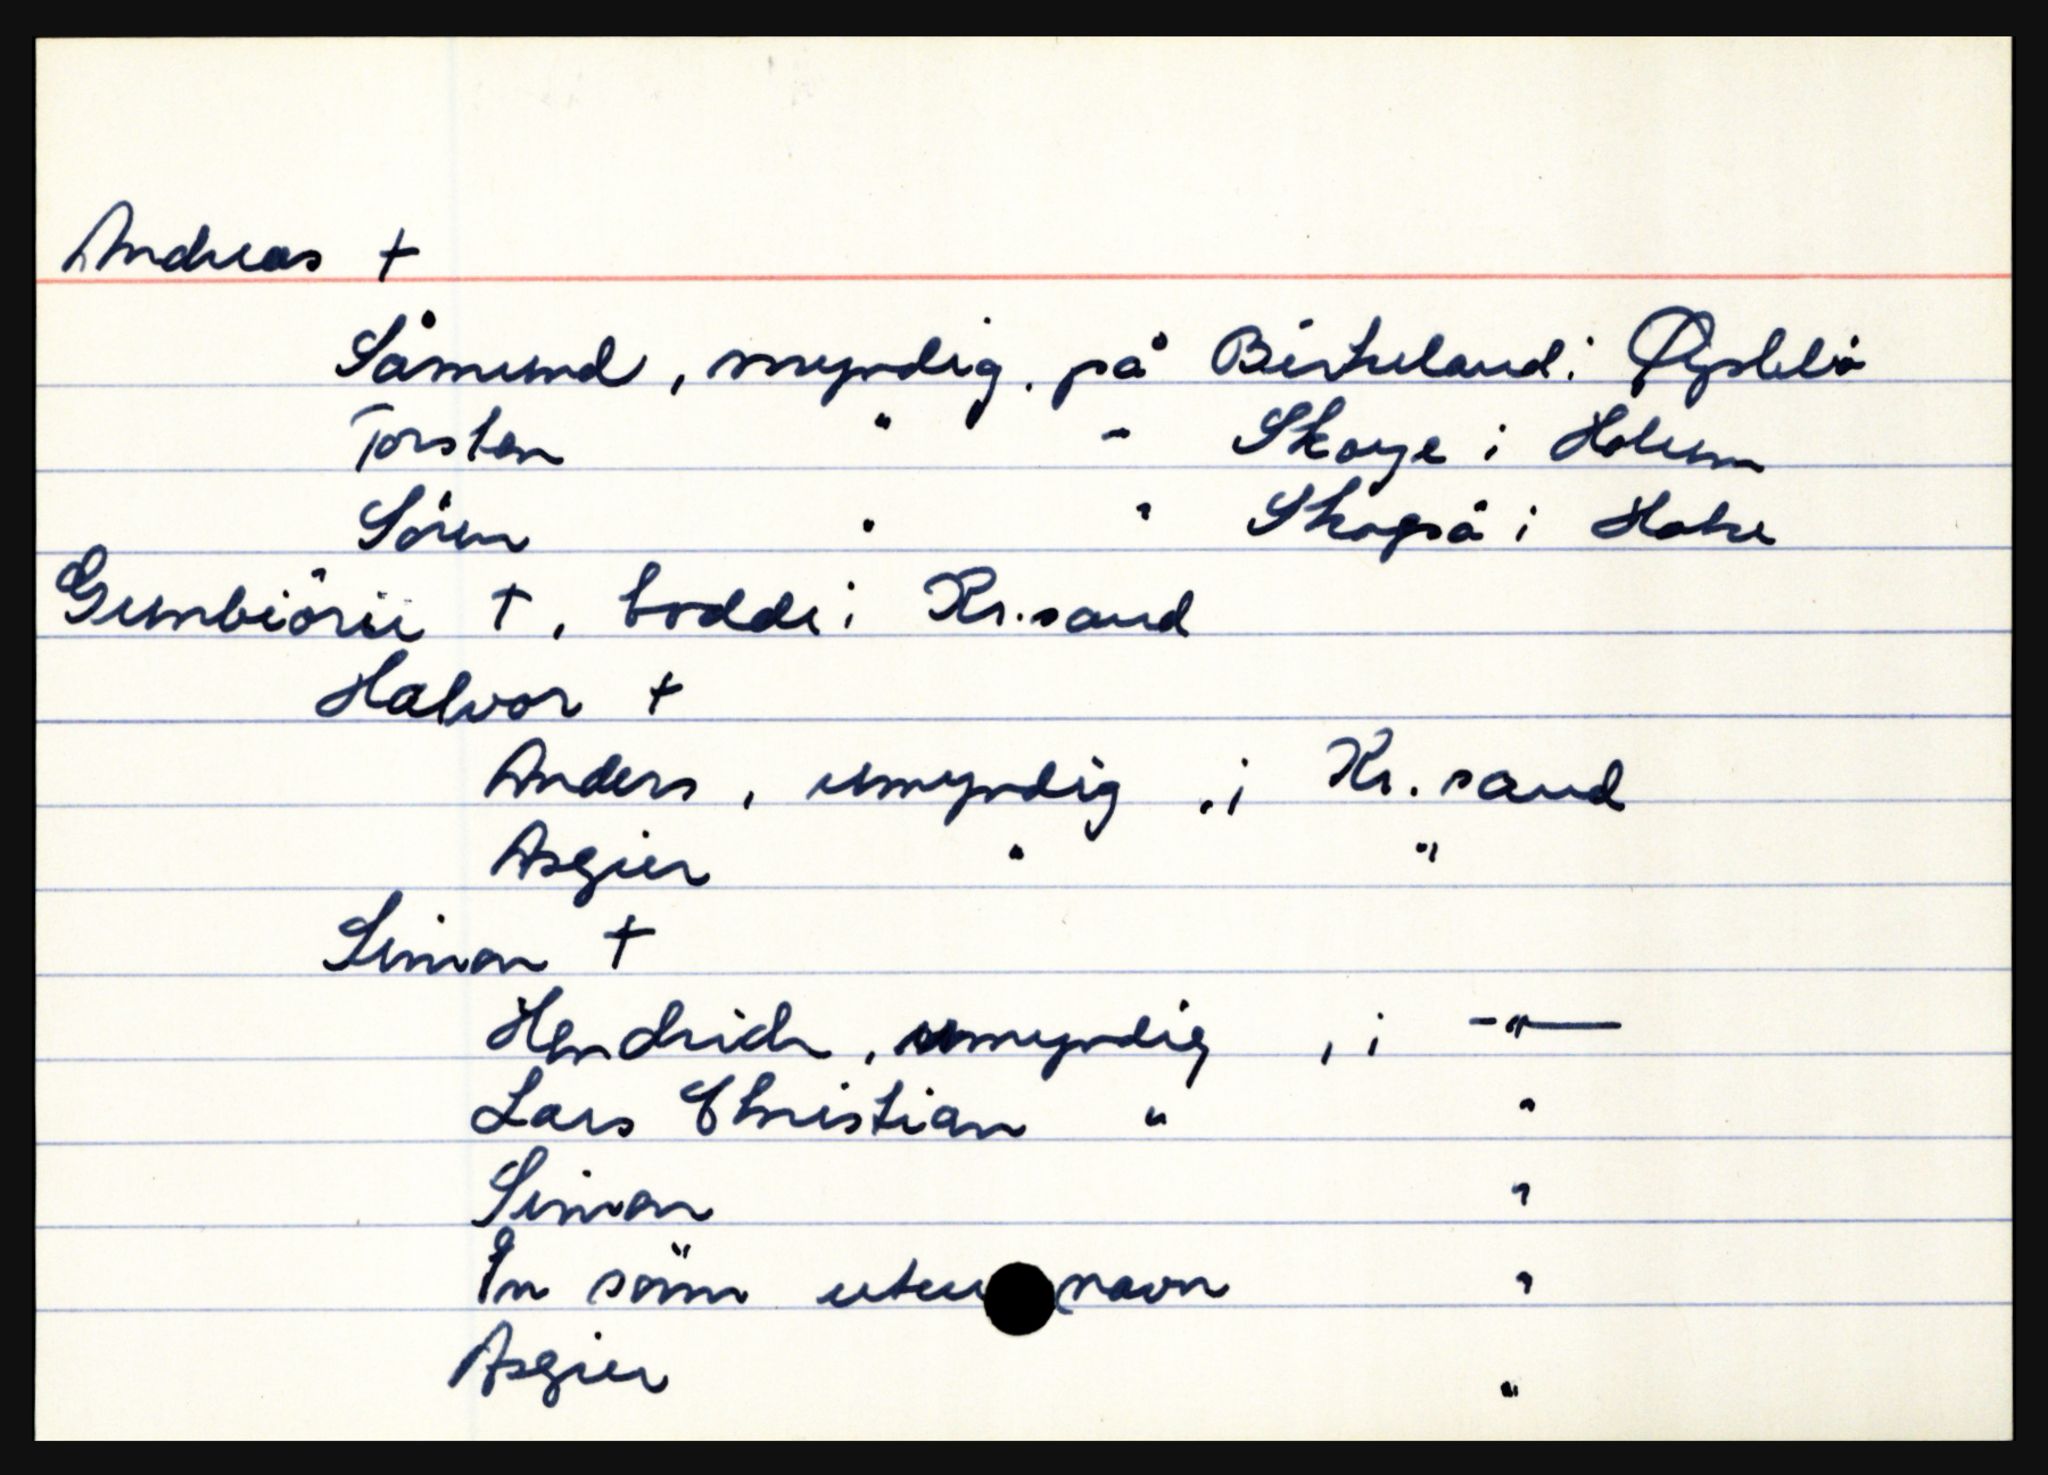 Andreas +
Såmund, myndig. på Birkeland i Øyslebö
Torsten " " Skoye i Holum
Sören " " Skogså i Halse
Gunbiörn +, bodde i Kr.sand
Halvor +
Anders, umyndig, i Kr.sand
Asgier " "
Simon +
Hendrich, umyndig, i -"-
Lars Christian " "
Simon "
En sönn uten navn "
Asgier "